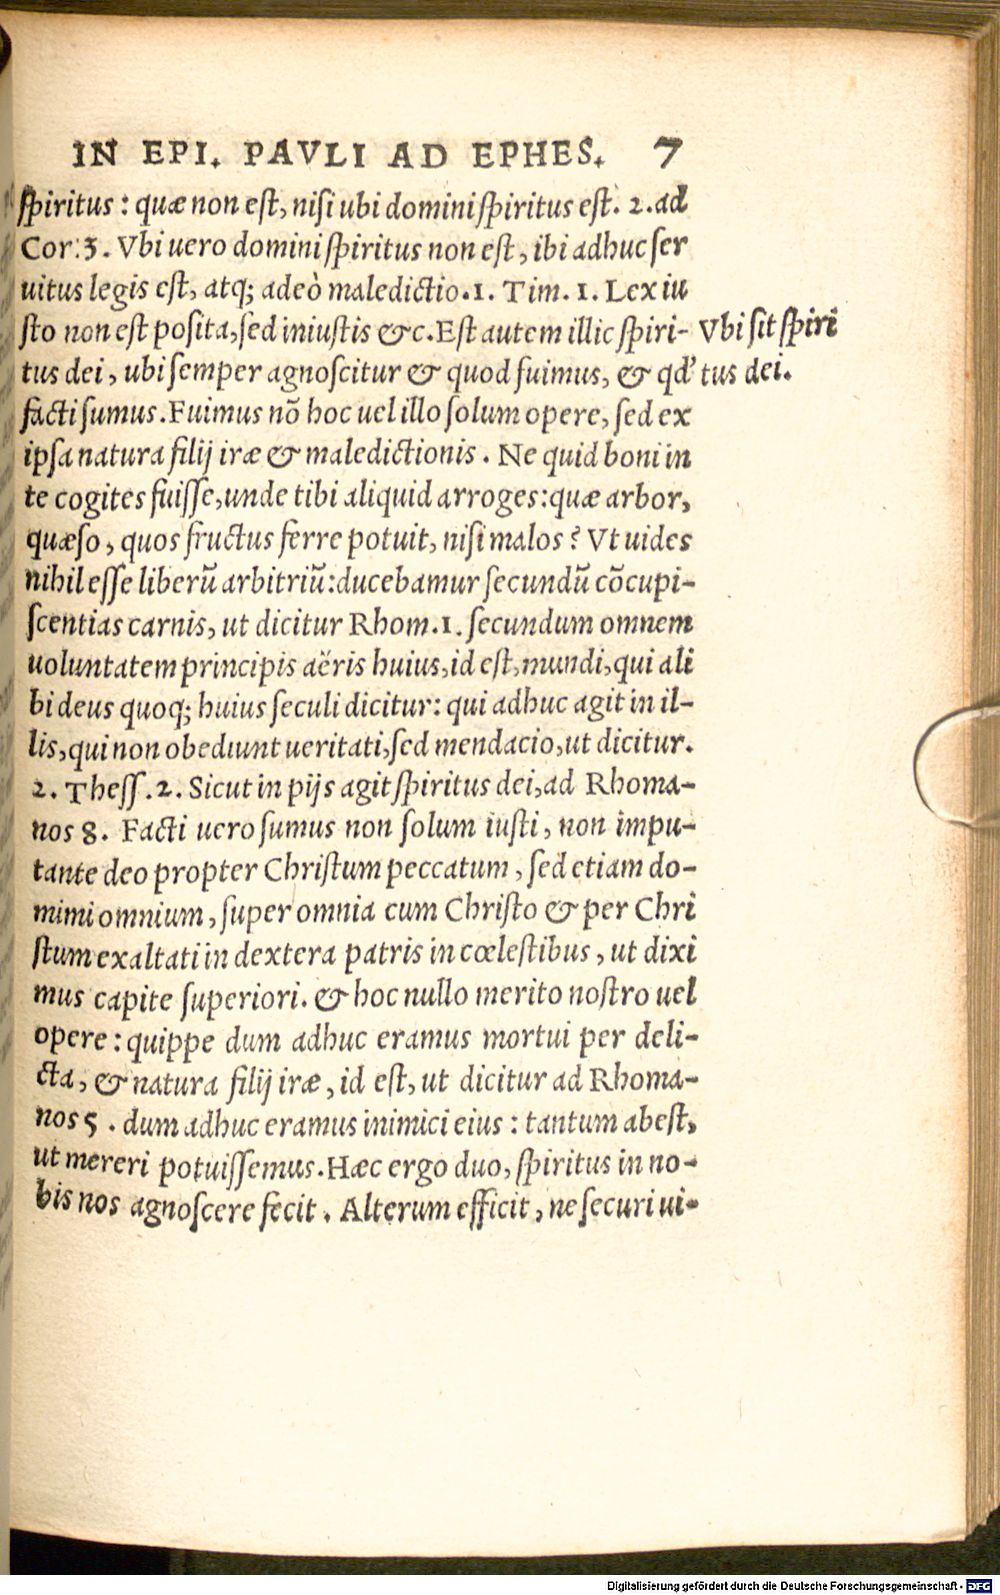 IN EPI. PAVLI AD EPHES. 7
spiritus: quæ non est, nisi ubi domini spiritus est. 2. ad
Cor. 3. Vbi uero domini spiritus non est, ibi adhuc ser
uitus legis est, atq; adeò maledictio. 1. Tim. 1. Lex iu
sto non est posita, sed iniustis &c. Est autem illic spiri-
Vbi sit spiri
tus dei, ubi semper agnoscitur & quod fuimus, & qđ
tus dei.
facti sumus. Fuimus nō hoc uel illo solum opere, sed ex
ipsa natura filij iræ & maledictionis. Ne quid boni in
te cogites fuisse, unde tibi aliquid arroges: quæ arbor,
quæso, quos fructus ferre potuit, nisi malos? Vt uides
nihil esse liberū arbitriū: ducebamur secundū cōcupi-
scentias carnis, ut dicitur Rhom. 1. secundum omnem
uoluntatem principis aëris huius, id est, mundi, qui ali
bi deus quoq; huius seculi dicitur: qui adhuc agit in il-
lis, qui non obediunt ueritati, sed mendacio, ut dicitur.
2. Thess. 2. Sicut in pijs agit spiritus dei, ad Rhoma-
nos 8. Facti uero sumus non solum iusti, non impu-
tante deo propter Christum peccatum, sed etiam do-
mimi omnium, super omnia cum Christo & per Chri
stum exaltati in dextera patris in cœlestibus, ut dixi
mus capite superiori. & hoc nullo merito nostro uel
opere: quippe dum adhuc eramus mortui per deli-
cta, & natura filij iræ, id est, ut dicitur ad Rhoma-
nos 5. dum adhuc eramus inimici eius: tantum abest,
ut mereri potuissemus. Hæc ergo duo, spiritus in no-
bis nos agnoscere fecit. Alterum efficit, ne securi ui-
Digitalisierung gefördert durch die Deutsche Forschungsgemeinschaft - DFG